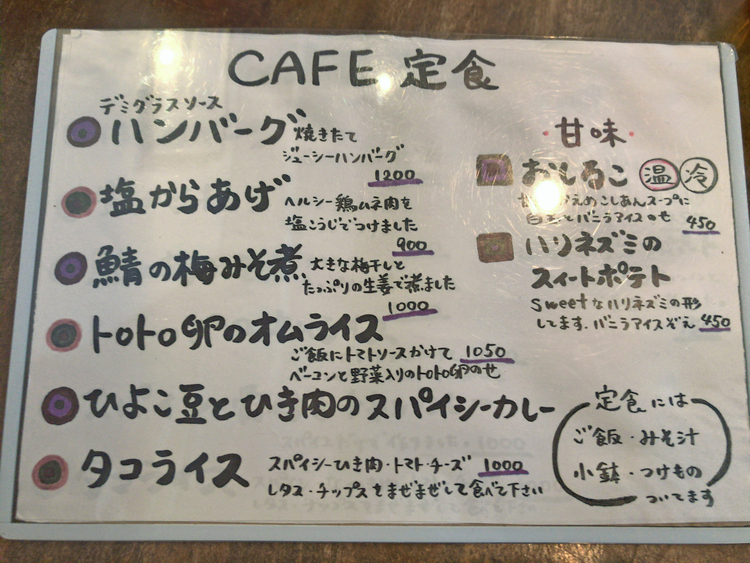 CAFE 定食
デミグラスソース
ハンバーグ 焼きたて
ジューシーハンバーグ
1200
塩からあげ ヘルシー鶏ムネ肉を
塩こうじでつけました
900
鯖の梅みそ煮 大きな梅干しと
たっぷりの生姜で煮ました
1000
トロトロ卵のオムライス
ご飯にトマトソースかけて 1050
ベーコンと野菜入りのトロトロ卵のせ
ひよこ豆とひき肉のスパイシーカレー
タコライス スパイシーひき肉・トマト・チーズ 1000
レタス・チップスをまぜまぜして食べて下さい
・甘味・
おしるこ 温 冷
えめこしあんスープに
白玉とバニラアイスのせ 450
ハリネズミの
スイートポテト
Sweetなハリネズミの形
してます。バニラアイスぞえ 450
定食には
ご飯・みそ汁
小鉢・つけもの
ついてます